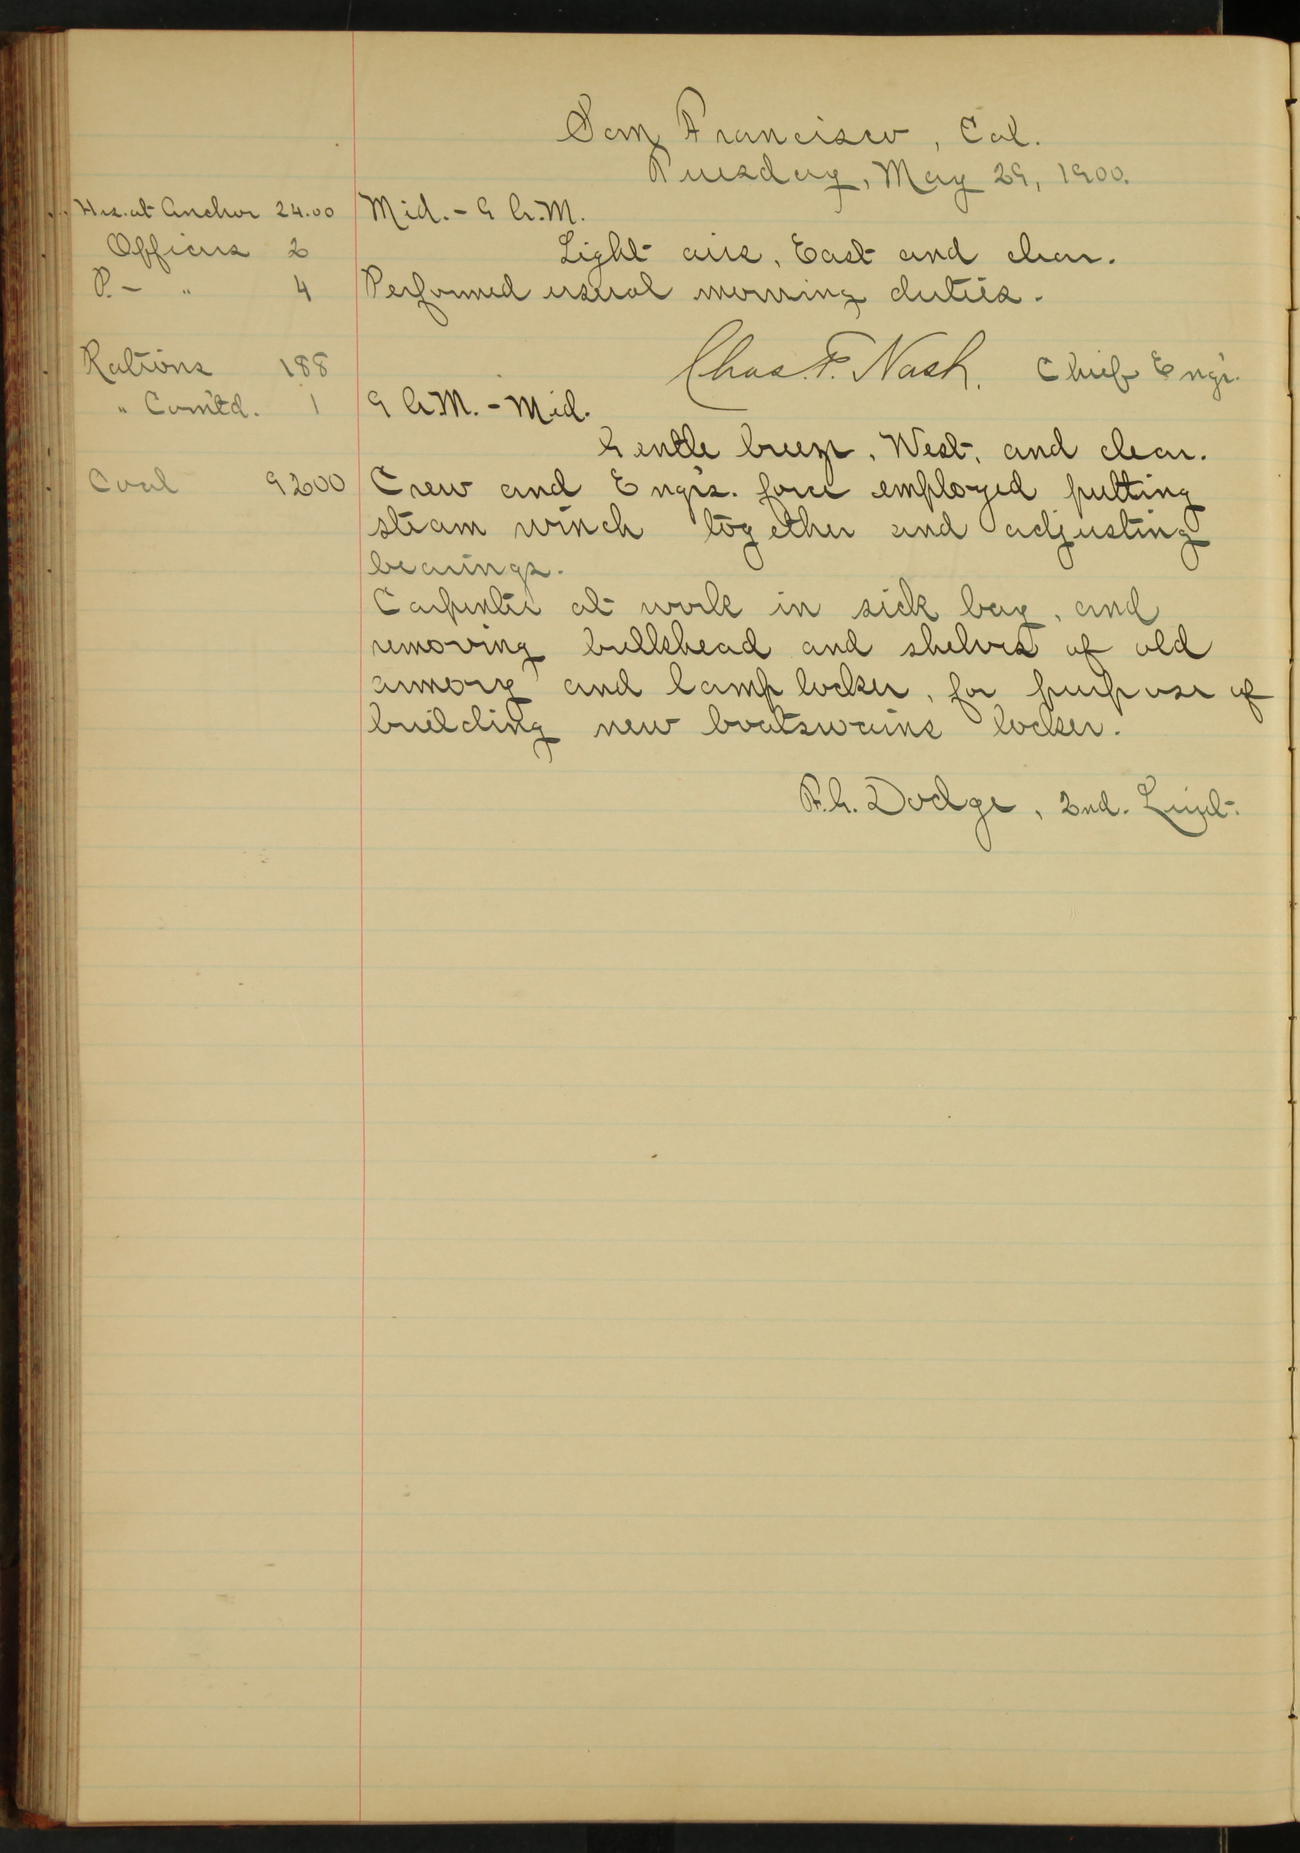 San Francisco, Cal.
Tuesday, May 29, 1900.
Hrs. at Anchor 24.00
Officers 2
P. - " 4
Rations 188
" Com'td. 1
Coal 9200
Mid. - 9 A.M.
Light airs, East and clear.
Performed usual morning duties.
Chas. F. Nash, Chief Engr.
9 A.M. - Mid.
Gentle breeze, West, and clear.
Crew and Engrs. force employed putting
steam winch together and adjusting
bearings.
Carpenter at work in sick bay, and
removing bulkhead and shelves of old
armory and lamp locker, for purpose of
building new boatswains locker.
F.G. Dodge, 2nd. Lieut.